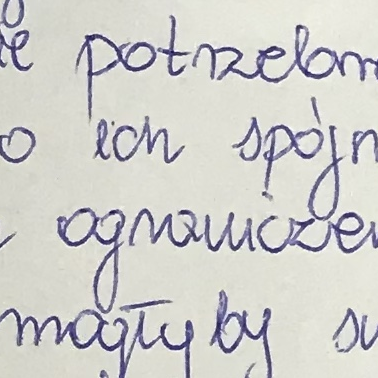 potrzebom
ich spójn
ograniczen
mogłyby